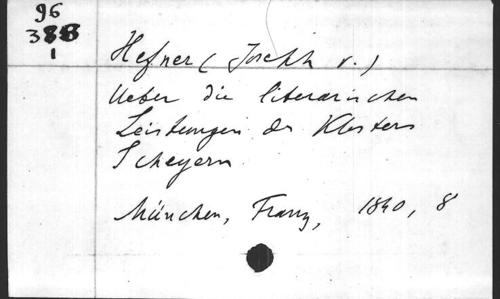 96
388
1
Hefner (Joseph v.)
Ueber die literarischen
Leistungen des Klosters
Scheyern
München, Franz, 1840, 8